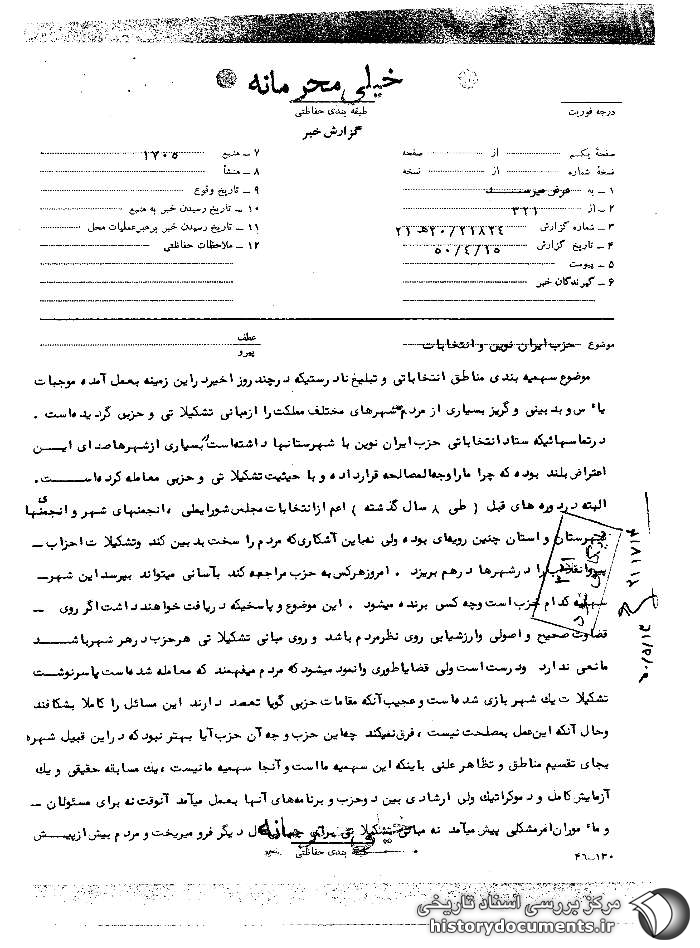 خیلی محرمانه
درجه فوریت
طبقه بندی حفاظتی
گزارش خبر
صفحهٔ یکم از صفحه
نسخهٔ شماره از نسخه
۱ ـ به عرض میرسد
۲ ـ از ۳۲۱
۳ ـ شماره گزارش ۲۰/۲۱۸۲۴هـ ۲۱
۴ ـ تاریخ گزارش ۵۰/۴/۱۵
۵ ـ پیوست
۶ ـ گیرندگان خبر
۷ ـ منبع ۱۷۰۵
۸ ـ منشأ
۹ ـ تاریخ وقوع
۱۰ ـ تاریخ رسیدن خبر به منبع
۱۱ ـ تاریخ رسیدن خبر برهبر عملیات محل
۱۲ ـ ملاحظات حفاظتی
موضوع حزب ایران نوین و انتخابات
عطف
پیرو
موضوع سهمیه بندی مناطق انتخاباتی و تبلیغ نادرستیکه در چند روز اخیر در این زمینه بعمل آمده موجبات
یاٴس و بد بینی و گریز بسیاری از مردم شهرهای مختلف مملکت را از مبانی تشکیلاتی و حزبی گردیده است .
در تماسهائیکه ستاد انتخاباتی حزب ایران نوین با شهرستانها داشته است بسیاری از شهرها صدای ایـن
اعتراض بلند بوده که چرا ما را وجه المصالحه قرار داده و با حیثیت تشکیلاتی و حزبی معامله کرده است .
البته در دوره های قبل ( طی ۸ سال گذشته ) اعم از انتخابات مجلس شورایملی ، انجمنهای شهر و انجمنهای
شهرستان و استان چنین رویه‌ای بوده ولی نه باین آشکاری که مردم را سخت بد بین کند و تشکیلات احزاب ـ
را در شهرها در هم بریزد . امروز هرکس به حزب مراجعه کند بآسانی میتواند بپرسد این شهر ـ
سهمیه کدام حزب است و چه کسی برنده میشود . این موضوع و پاسخیکه دریافت خواهند داشت اگر روی ـ
قضاوت صحیح و اصولی و ارزشیابی روی نظر مردم باشد و روی مبانی تشکیلاتی هر حزب در هر شهر باشـد
مانعی ندارد و درست است ولی قضایا طوری وانمود میشود که مردم میفهمند که معامله شده است یا سرنوشت
تشکیلات یك شهر بازی شده است و عجیب آنکه مقامات حزبی گویا تعمد دارند این مسائل را کاملا بشکافند
و حال آنکه این عمل بمصلحت نیست ، فرق نمیکند چه این حزب و چه آن حزب آیا بهتر نبود که در این قبیل شهرها
بجای تقسیم مناطق و تظاهر علنی باینکه این سهمیه ما است و آنجا سهمیه ما نیست ، یك مسابقه حقیقی و یك
آزمایش کامل و دموکراتیك ولی ارشادی بین دو حزب و برنامه‌های آنها بعمل میآمد آنوقت نه برای مسئولان ـ
و ماٴموران امر مشکلی پیش میآمد نه مبانی تشکیلاتی دیگر فرو میریخت و مردم بیش از پیش
خیلی محرمانه
طبقه بندی حفاظتی
۴۶ـ۱۳۰
مرکز بررسی اسناد تاریخی
historydocuments.ir